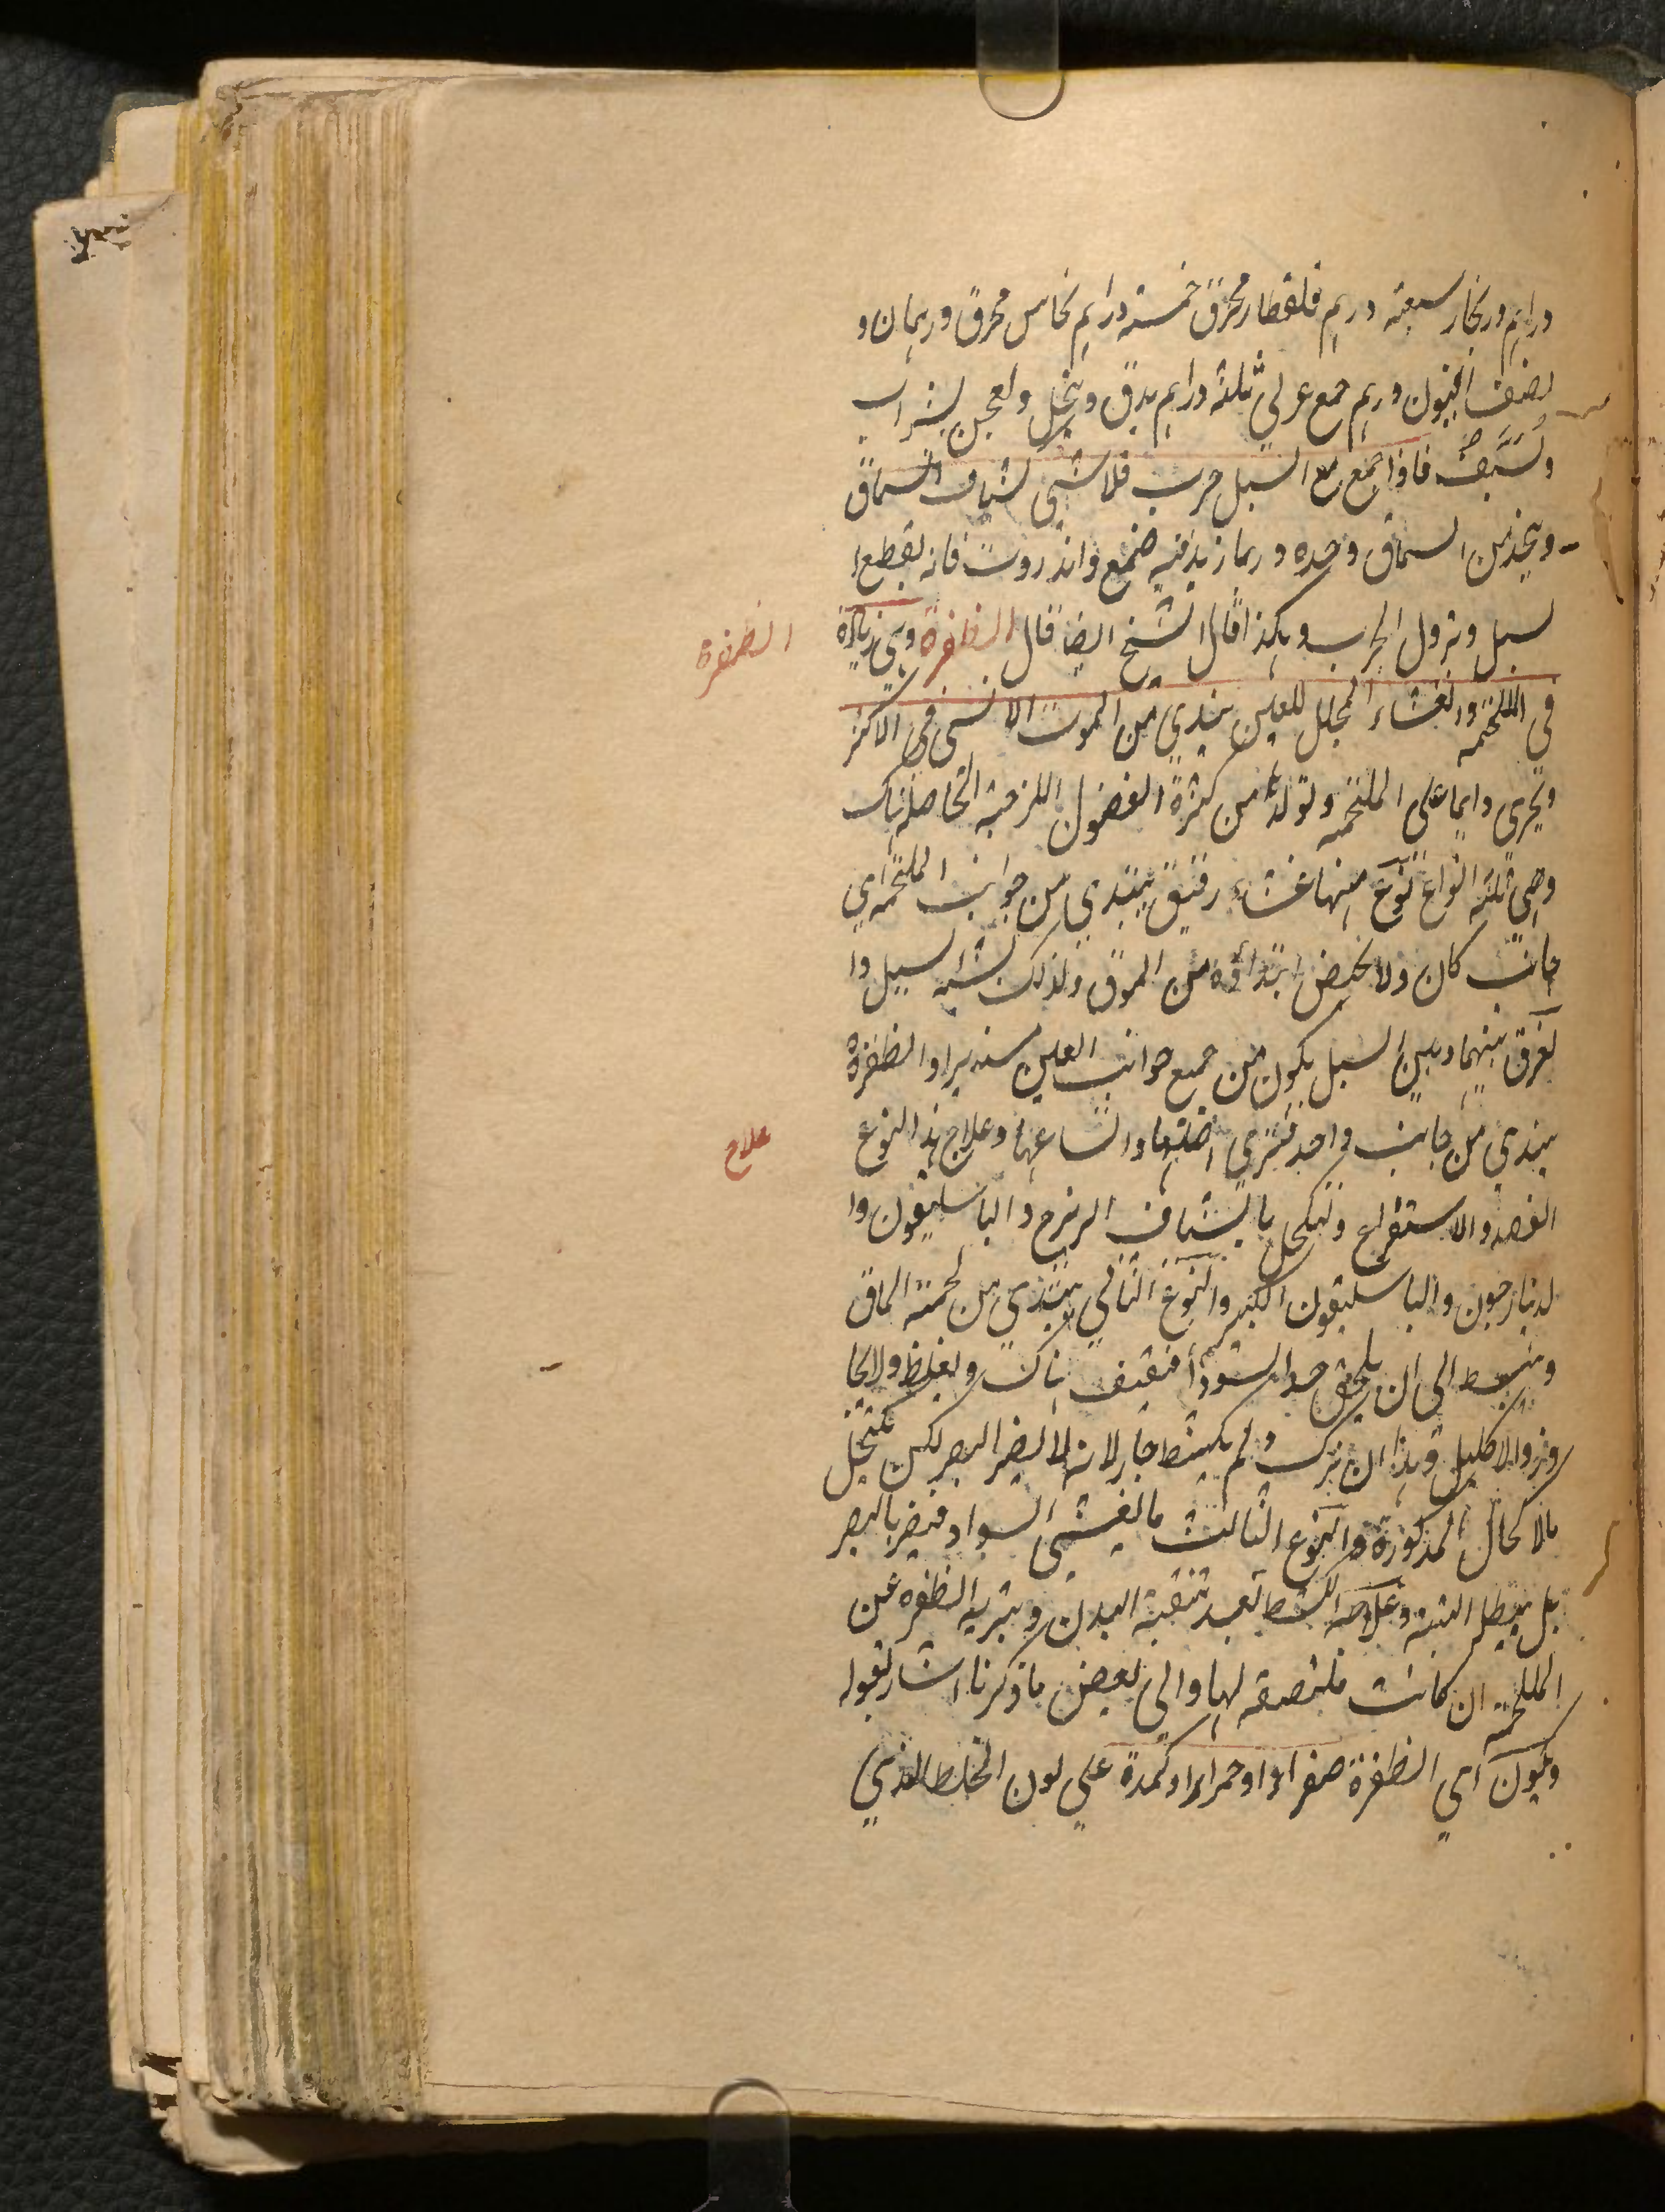 دراهم زنجار سبعة درهم قلقطار محرق خمسة دراهم نحاس محرق درهمان و
نصف افيون درهم صمغ عربي ثلثة دراهم يدق وينخل ويعجن بشراب
ويشيف فاذا اجتمع مع السبل جرب فلا شئ كشياف السماق
ويتخذ من السماق وحده وربما زيد فيه صمغ وانزروت فانه يقطع ا
لسبل ويزول الجرب وهكذا قال الشيخ ايضا قال الظفرة وهي زيادة
الظفرة
في الملتحمة والغشاء المجلل للعين يبتدي من الموق الانسي في الاكثر
ويجري دايما على الملتحمة وتولدها من كثرة الفضول اللزجة الحاصلة هناك
وهي ثلثة انواع نوع منها غشاء رقيق يبتدي من جوانب الملتحمة اي
جانب كان ولا يختص ابتداؤه من الموق ولذلك يشابه السبل وا
لفرق بينهما وبين السبل يكون من جميع جوانب العين مستديرا والظفرة
يبتدي من جانب واحد فترى وعلاج هذا النوع
علاج
الفصد والاستفراغ وتكحل بالشياف الزرنيخ والباسليقون وا
لدينارجون والباسليقون الكبير والنوع الثاني يبتدي من لحمة الماق
وينبسط الى ان يلحق حد السواد فيقف هناك ويغلظ ولا يجا
وز الاكليل وهذا ان ترك ولم يكشط جاز لانه لا يضر البصر لكن تكتحل
بالاكحال المذكورة والنوع الثالث ما يغشي السواد فيضر بالبصر
بل يبطل البتة وعلاجه الكشط بعد تنقية البدن وتبرية الظفرة عن
الملتحمة ان كانت ملتصقة بها والى بعض ما ذكرنا اشار بقوله
ويكون اي الظفرة صفراء او حمراء او كمدة على لون الخلط الذي